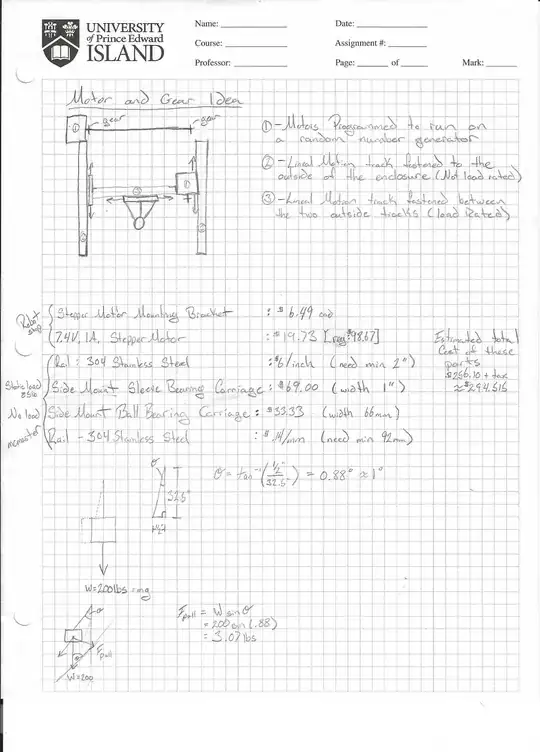 UNIVERSITY
of Prince Edward
ISLAND
Name:
Date:
Course:
Assignment #:
Professor:
Page: of
Mark:
Motor and Gear Idea
gear
gear
① - Motors Programmed to run on
a random number generator
② - Lineal Motion track fastened to the
outside of the enclosure (Not load rated)
③ - Lineal Motion track fastened between
the two outside tracks (load Rated)
Robot
Shop
Stepper Motor Mounting Bracket : $6.49 ea
7.4V, 1A, Stepper Motor : $19.73
Estimated total
Cost of these
parts
$256.10 + tax
≈ $294.515
Static load
Rail: 304 Stainless Steel : $6/inch (need min 2")
Side Mount Sleeve Bearing Carriage : $69.00 (width 1")
No load
Side Mount Ball Bearing Carriage : $33.33 (width 66mm)
Rail - 304 Stainless Steel : $.14/mm (need min 92mm)
θ
32.5"
1/2"
θ = tan⁻¹(1/2"/32.5") = 0.88° ≈ 1°
W=200lbs = mg
F pull = W sin θ
= 200 sin(.88)
= 3.07 lbs
θ
F pull
W=200